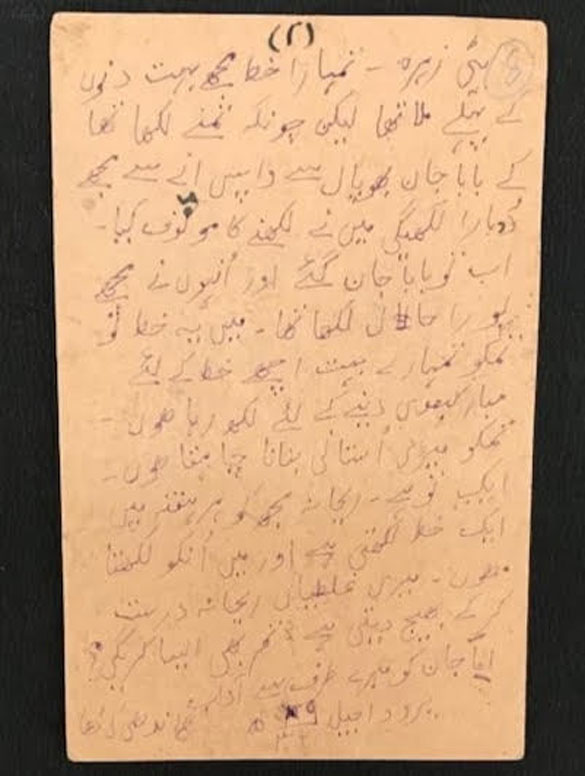 (۲)
بیٹی زہرہ - تمہارا خط مجھے بہت دنوں
کے پہلے ملا تھا لیکن چونکہ تمنے لکھا تھا
کے بابا جان بھوپال سے واپس انے سے مجھے
دُوبارا لکھنگی میں نے لکھنے کا موقوف کیا-
اب تو بابا جان گئے اور اُنہوں نے مجھے
پورا حال لکھا تھا - میں یہ خط تو
تمکو تمہارے بہت اچھے خط کے لئے
مبارکبادی دینے کے لئے لکھ رہا ہوں -
تمکو میری اُستانی بنانا چاہتا ہوں -
ایک تو ہے - ریحانہ مجھکو ہر ہفتہ میں
ایک خط لکھتی ہے اور میں اُنکو لکھتا
ہوں - میری غلطیاں ریحانہ درست
کر کے بھیج دیتی ہے تم بھی ایسا کرنگی؟
اماّ جان کو میرے طرف سے آداب
بروداجیل